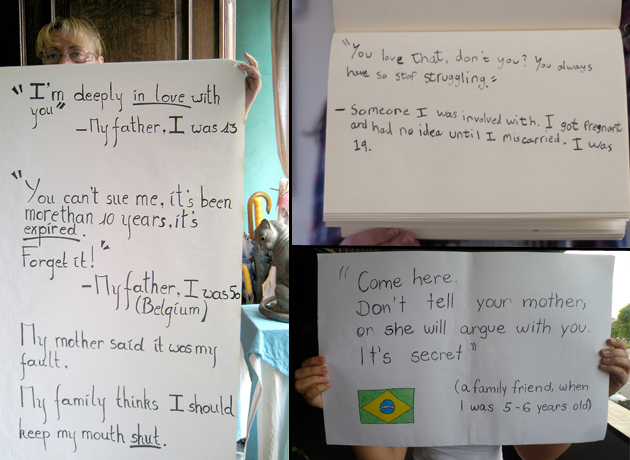 "I'm deeply in love with
you"
—My father, I was 13
"You can't sue me, it's been
more than 10 years, it's
expired.
Forget it!"
—My father, I was 50
(Belgium)
My mother said it was my
fault.
My family thinks I should
keep my mouth shut.
"You love that, don't you? You always
have so stop struggling."
— Someone I was involved with. I got pregnant
and had no idea until I miscarried. I was
19.
"Come here.
Don't tell your mother,
or she will argue with you.
It's secret"
(a family friend, when
I was 5-6 years old)